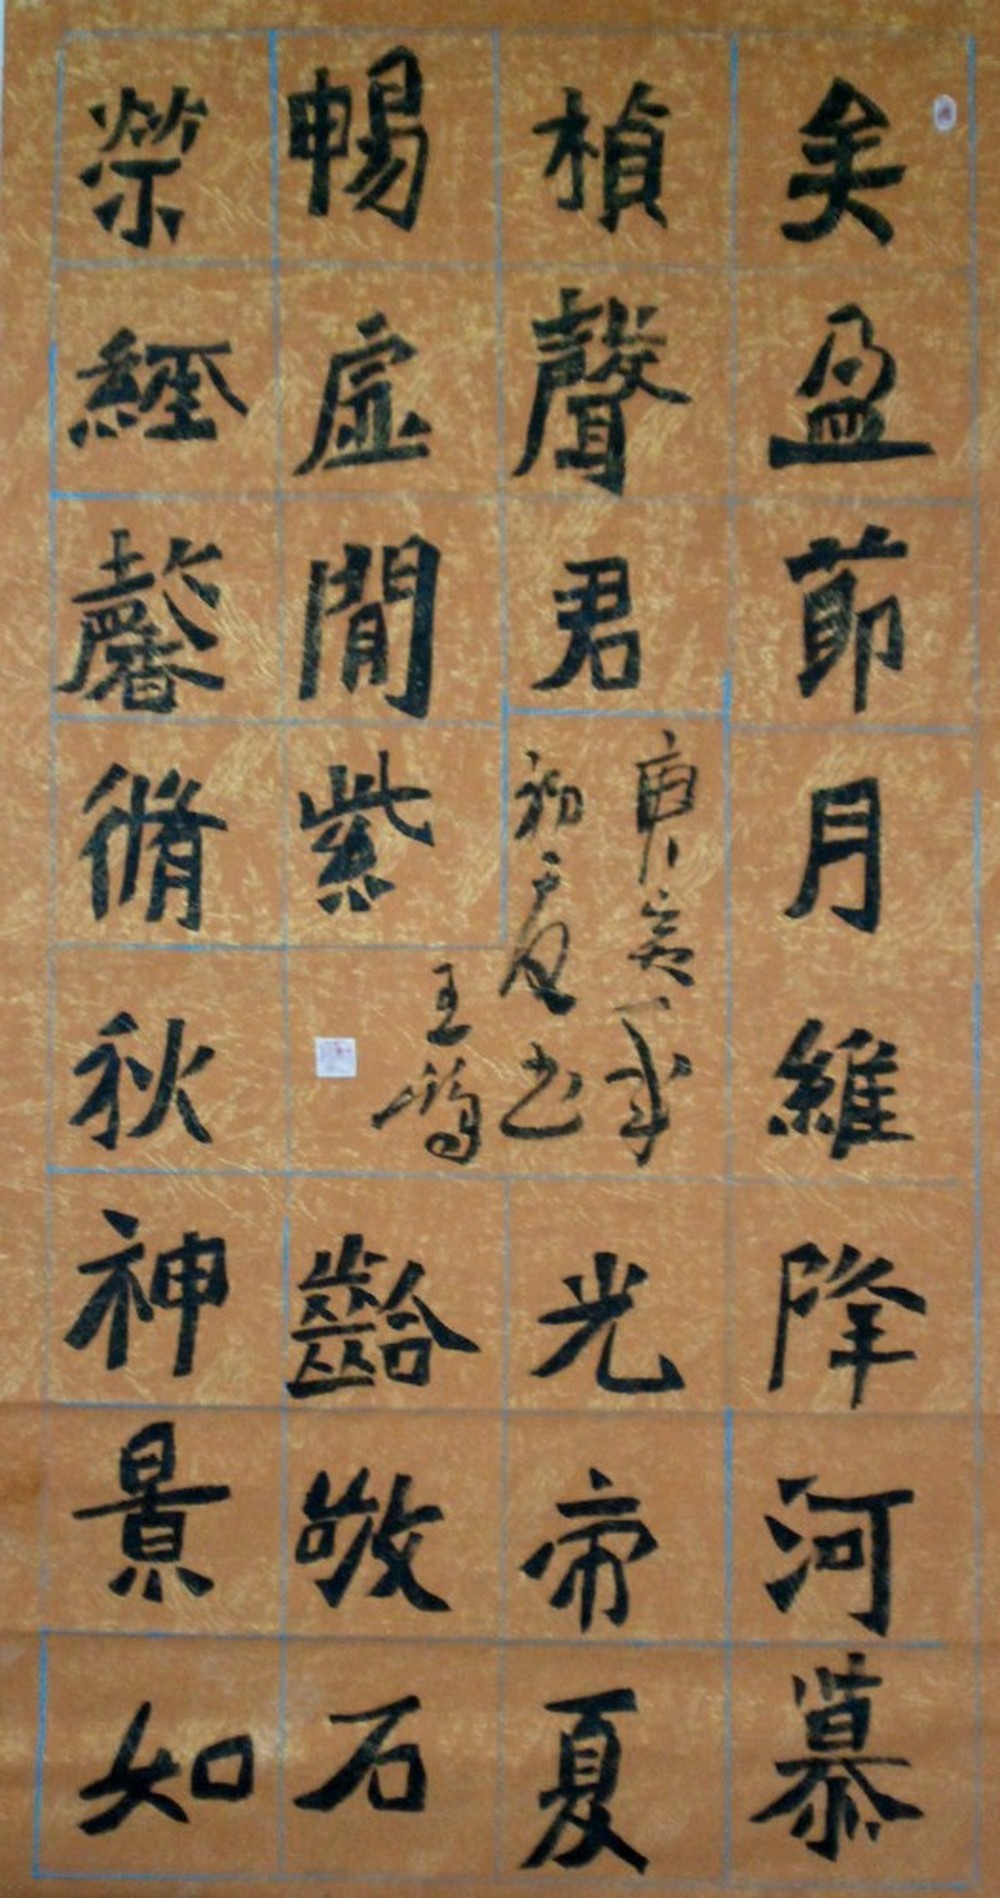 矣盈節月維降河慕
楨聲君
光帝夏
暢虛閒紫
齡敬石
榮經馨脩秋神景如
庚寅年
初夏書
王